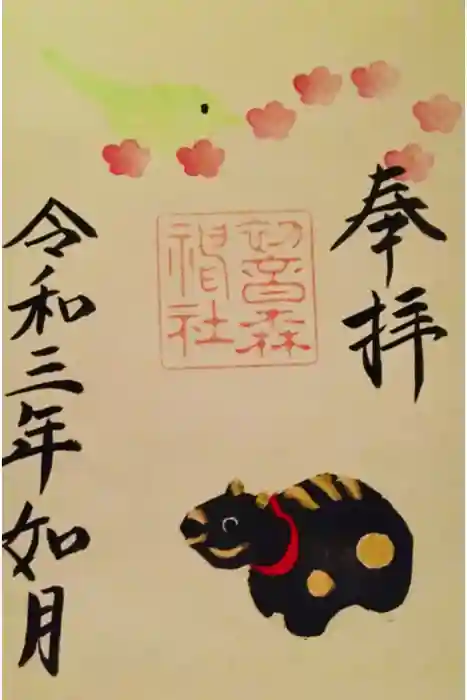 奉拝
初音森
神社
令和三年如月